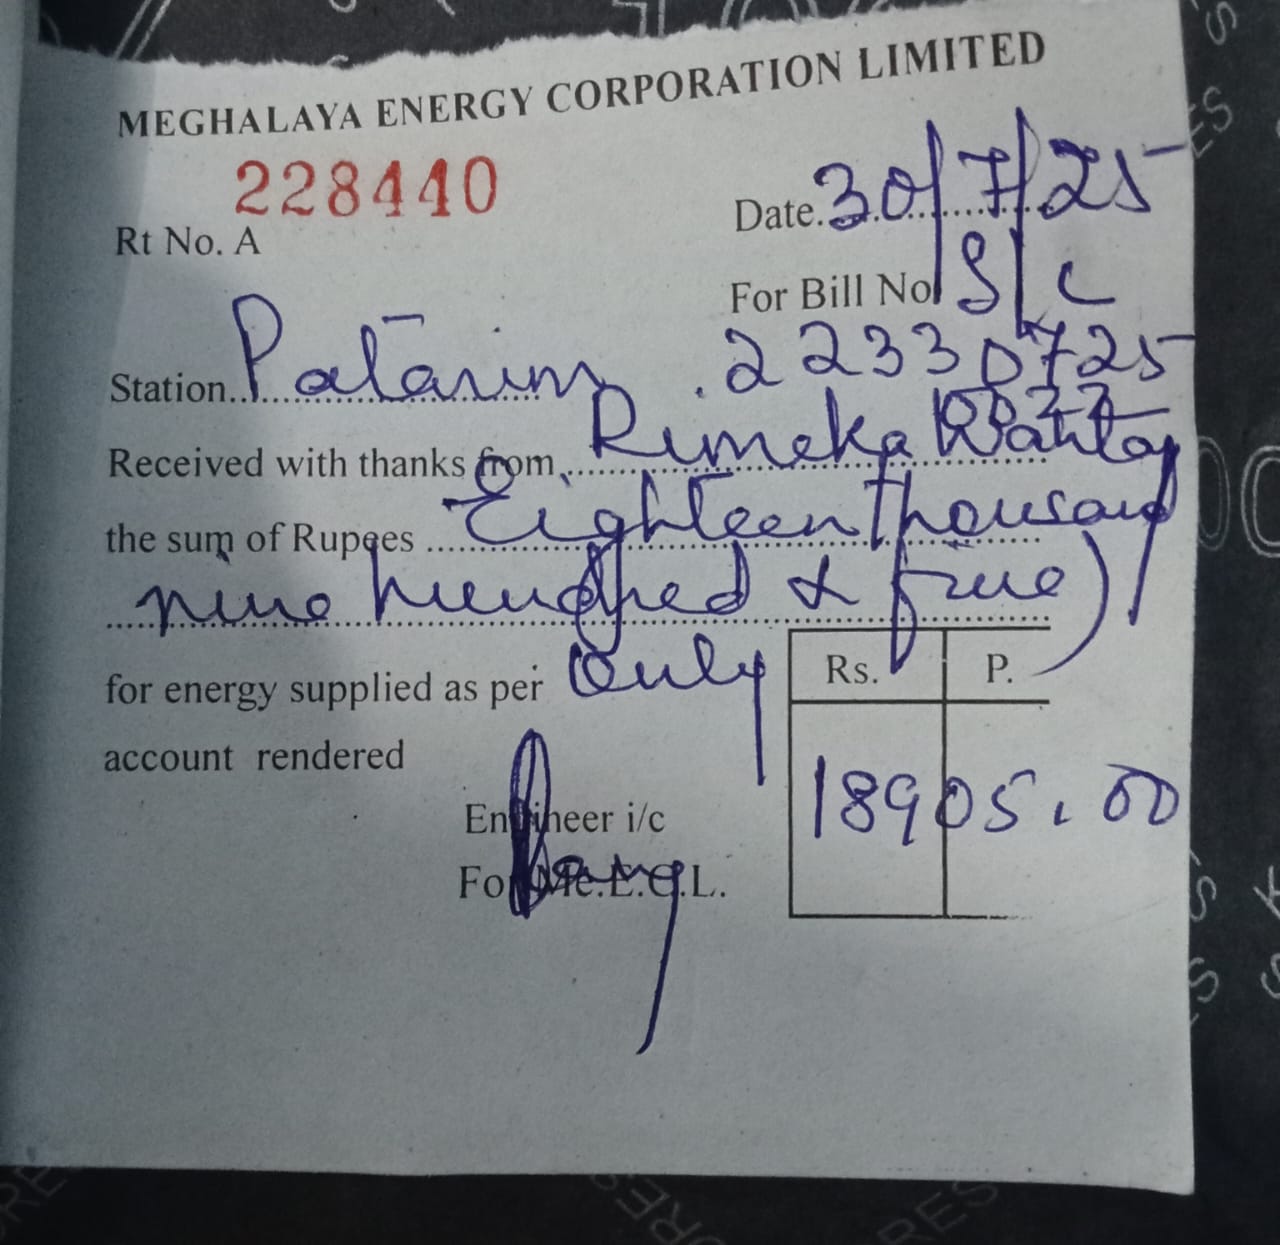 MEGHALAYA ENERGY CORPORATION LIMITED
228440
Rt No. A
Date. 30/7/25
For Bill No S/C
22330725
Station.. Patarim
Received with thanks from Rimeka
the sum of Rupees Eighteen thousand
nine hundred & five)
for energy supplied as per Only
Rs. P.
account rendered
18905.00
Engineer i/c
For Me.E.C.L.